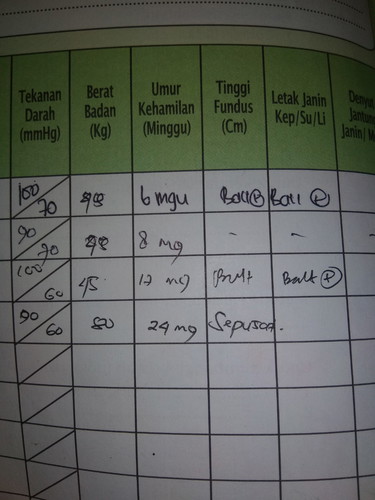 Tekanan Darah (mmHg) Berat Badan (Kg) Umur Kehamilan (Minggu) Tinggi Fundus (Cm) Letak Janin Kep/Su/Li Denyut Jantung Janin/
100/70 48 6 mgu Ball
90/70 48 8 mg - - -
100/60 45 mg Ball
90/60 50 24 mg Sepusat.